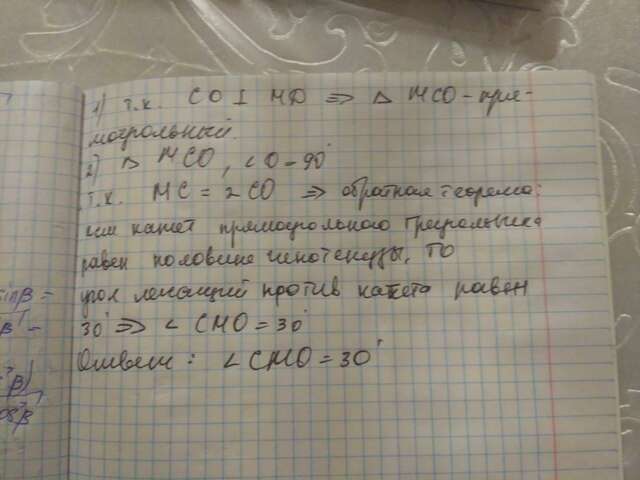 1) т.к. CO ⊥ MD => △ MCO - пря-
моугольный.
2) △ MCO, ∠O - 90°
т.к. MC = 2CO => обратная теорема:
если катет прямоугольного треугольника
равен половине гипотенузы, то
угол лежащий против катета равен
30° => ∠ CMO = 30°
Ответ: ∠ CMO = 30°
sinβ =